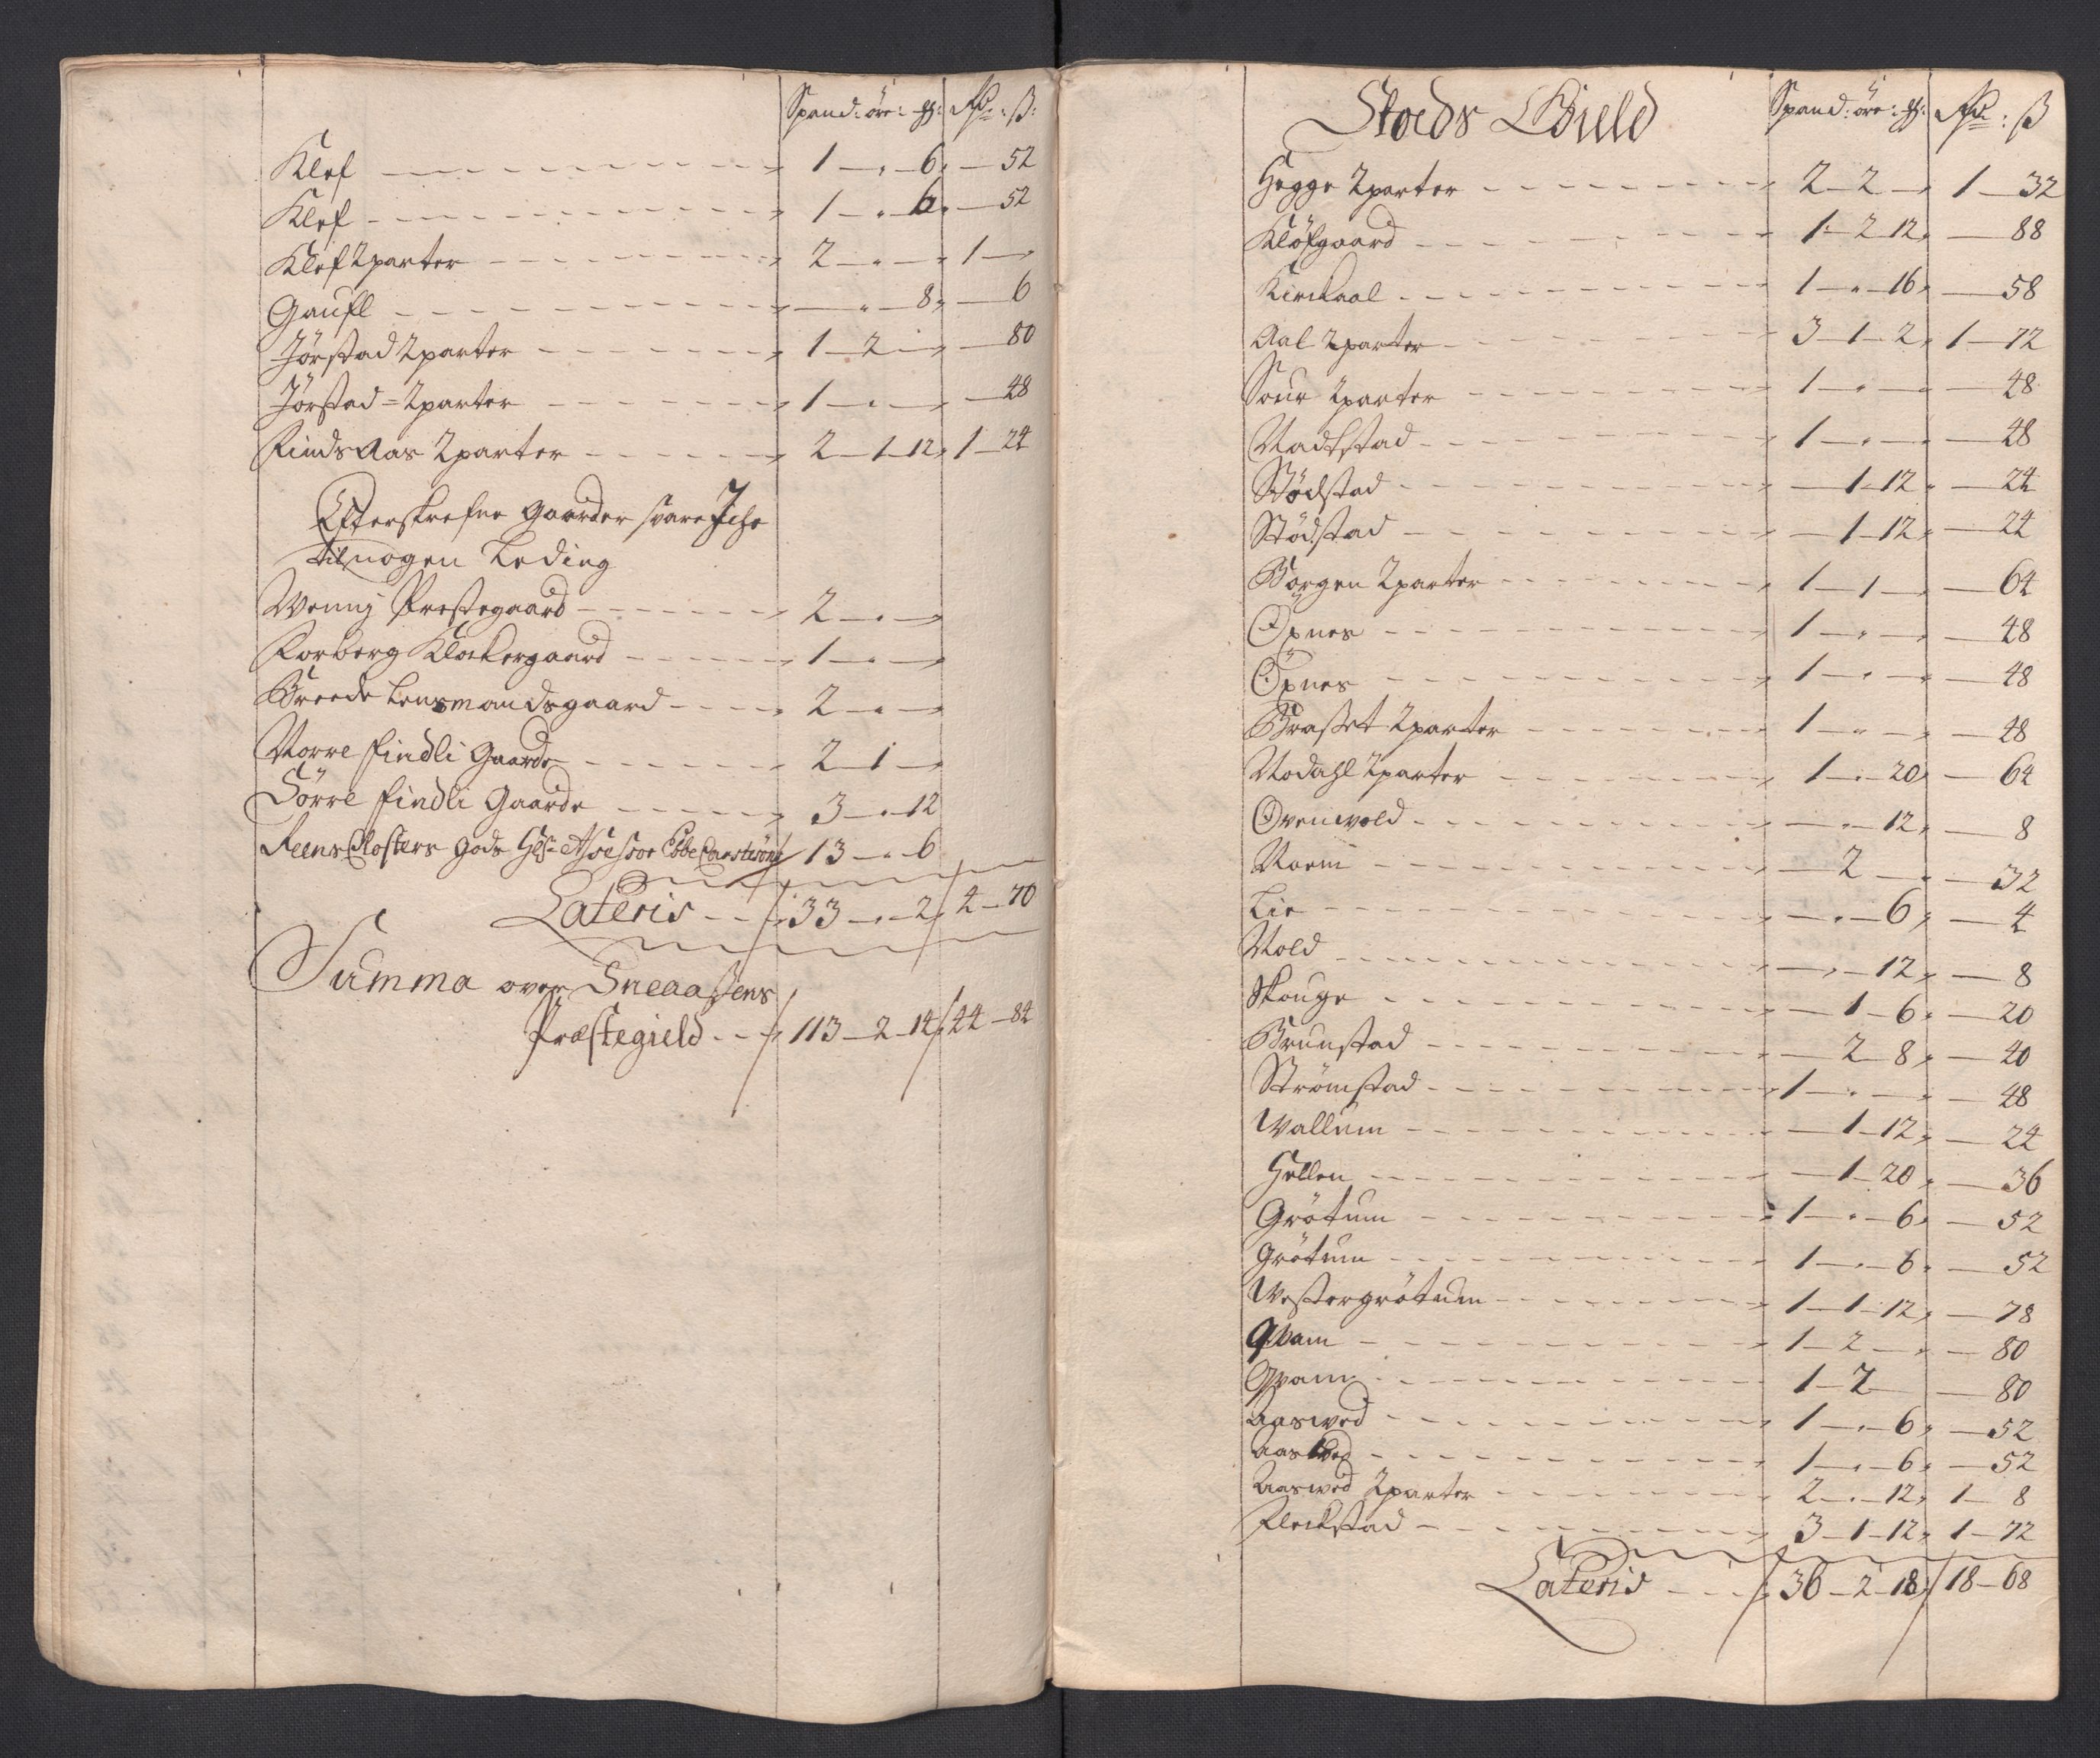 Spand: öre: Mk: Rd: ß:
Klef 1 — " — 6 " — 52
Klef 1 — " — 6 " — 52
Klef 2 parter 2 — " — " 1 —
Gaufl — " — 8 " — 6
Jörstad 2 parter 1 — 2 — " — 80
Jörstad = 2 parter 1 — " — " — 48
Rinds Aas 2 parter 2 — 1 — 12 " 1 — 24
Efterskrefne Gaarder svare Iche
til nogen Leding
Wennj Prestegaard 2 — " — "
Korberg Klockergaard 1 — " — "
Breede Lensmandsgaard 2 — " — "
Norre findli Gaarde 2 — 1 — "
Sörre findli Gaarde 3 — " — 12
Reens Closters gods Hr: Assessor Ebbe Carstesöns 13 — " — 6
Lateris 33 — " — 2 / 4 — 70
Summa over Sneaasens
Præstegield 113 — 2 — 14 / 44 — 84
Stods Gield Spand: öre: Mk: Rd: ß
Hegge 2 parter 2 — 2 — " 1 — 32
Klöfgaard 1 — 2 — 12 " — 88
Kirckaal 1 — " — 16 " — 58
Aal 2 parter 3 — 1 — 2 " 1 — 72
Sour 2 parter 1 — " — " — 48
Nadstad 1 — " — " — 48
Stödstad — 1 — 12 " — 24
Stödstad — 1 — 12 " — 24
Borgen 2 parter 1 — 1 — " — 64
Öxnes 1 — " — " — 48
Öxnes 1 — " — " — 48
Brasset 2 parter 1 — " — " — 48
Nodahl 2 parter 1 — " — 20 " — 64
Ovenvold — " — 12 " — 8
Noem — 2 — " — 32
Lie — " — 6 " — 4
Vold — " — 12 " — 8
Skouge — 1 — 6 " — 20
Brunstad — 2 — 8 " — 40
Strömstad 1 — " — " — 48
Wallum — 1 — 12 " — 24
Hellen — 1 — 20 " — 36
Grötum 1 — " — 6 " — 52
Grötum 1 — " — 6 " — 52
Westergrötum 1 — 1 — 12 " — 78
Qvam 1 — 2 — " — 80
Qvam 1 — 2 — 80
Aasved 1 — " — 6 " — 52
Aasved 1 — " — 6 " — 52
Aasved 2 parter 2 — " — 12 " 1 — 8
Fleckstad 3 — 1 — 12 " 1 — 72
Lateris 36 — 2 — 18 / 18 — 68